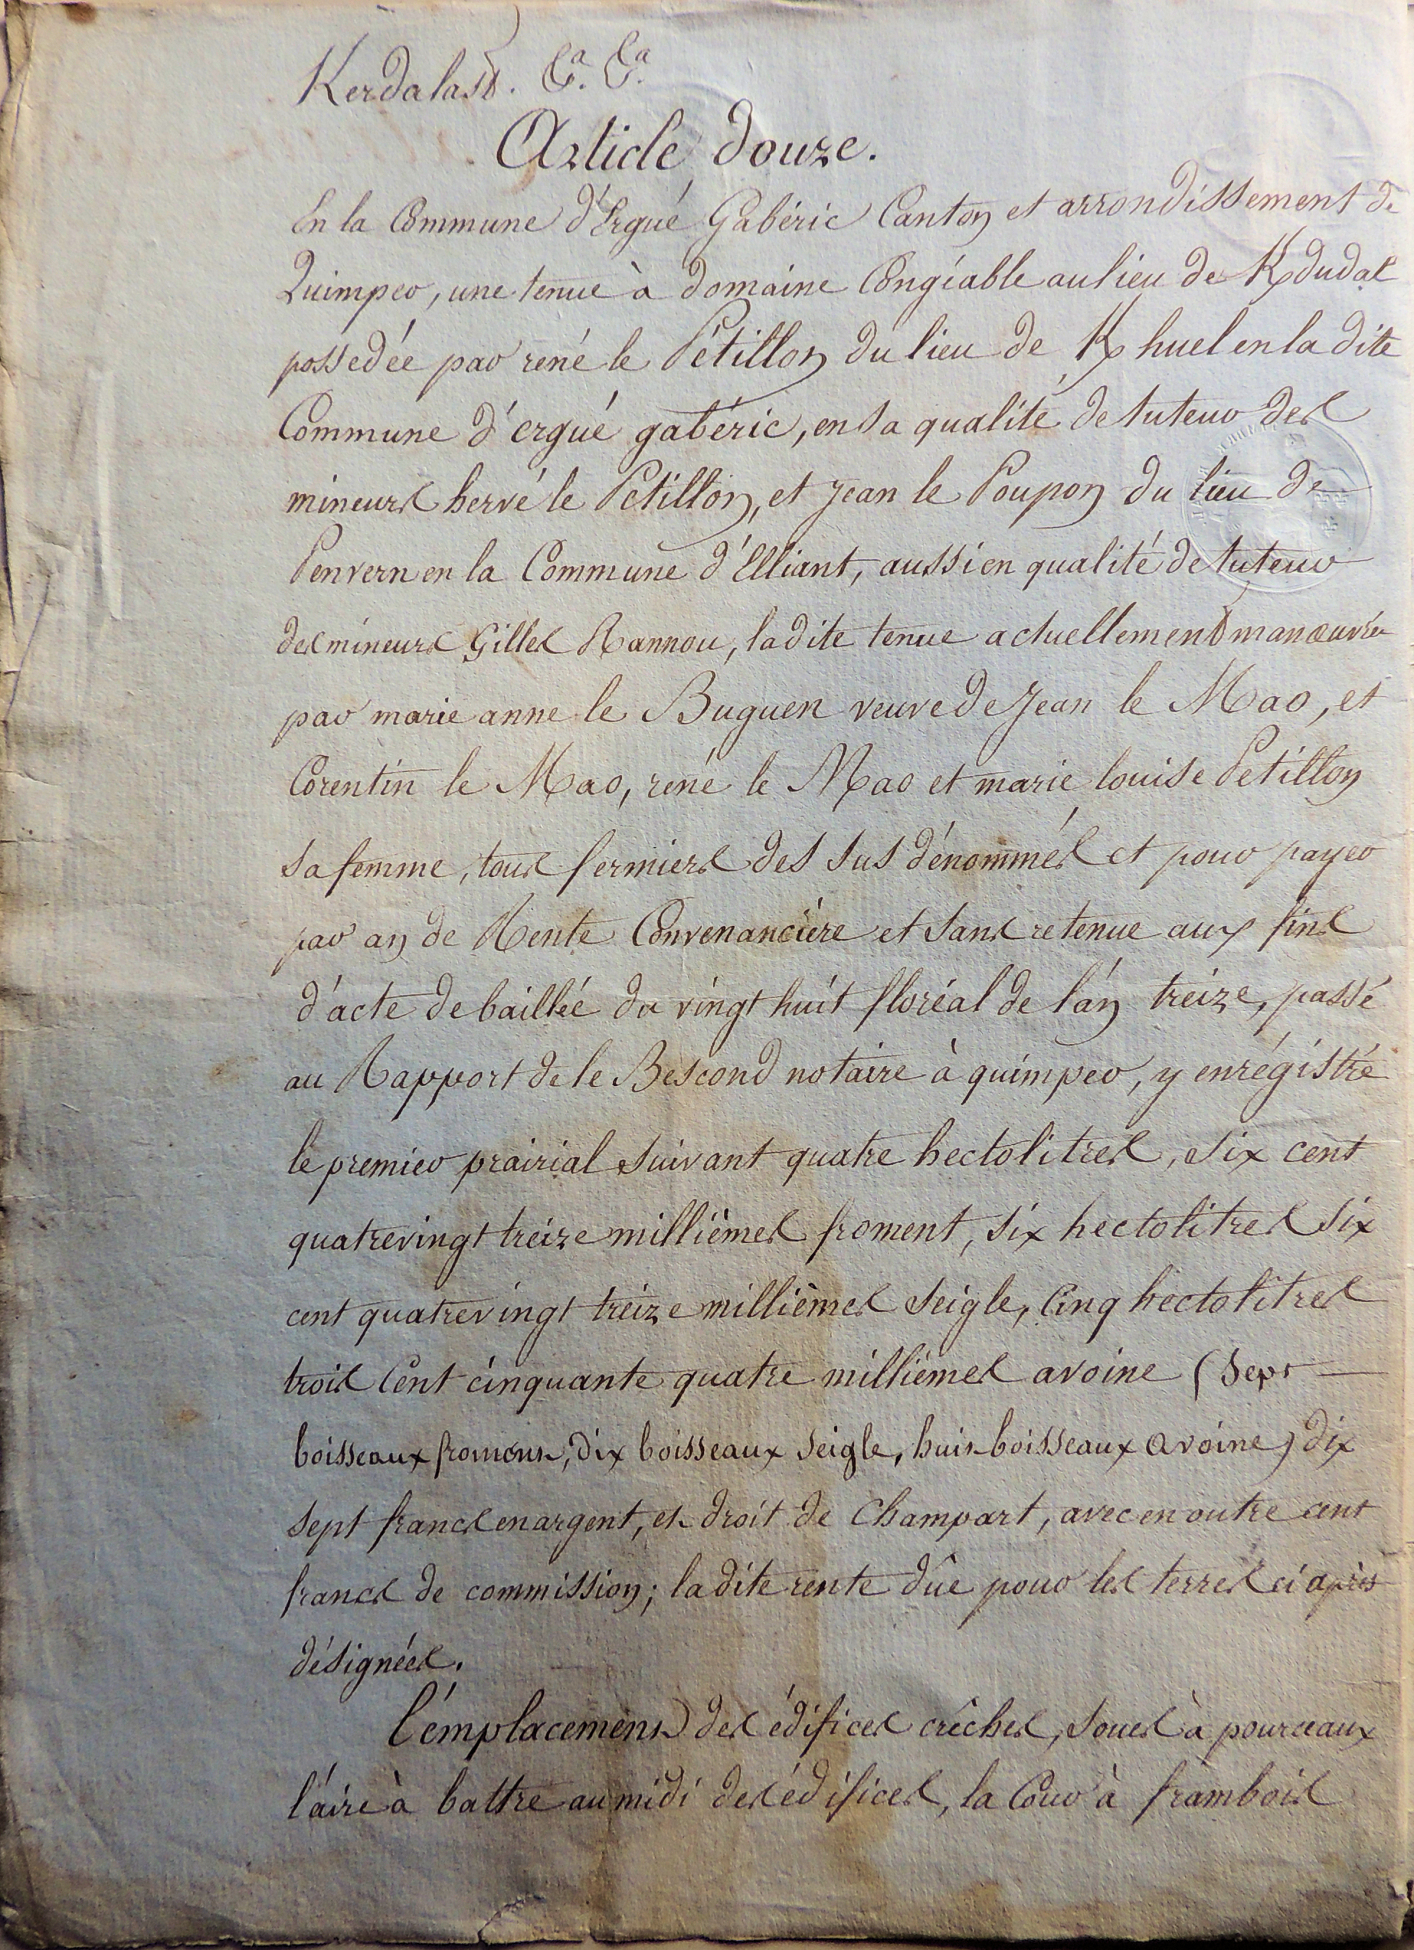 Kerdalast. E.a E.a
Article douze.
En la Commune d'Ergué Gabéric Canton et arrondissement de
Quimper, une tenue à domaine Congéable au lieu de Kdudal
possedée par rené le Pétillon du lieu de K huel en la dite
Commune d'ergué gabéric, en sa qualité de tuteur des
mineurs hervé le Petillon, et Jean le Poupon du lieu de
Penvern en la Commune d'Elliant, aussi en qualité de tuteur
des mineurs Gilles Rannou, la dite tenue actuellement manœuvrée
par marie anne le Buguen veuve de Jean le Mao, et
Corentin le Mao, réné le Mao et marie louise Petillon
sa femme, tous fermiers des sus dénommés et pour payer
par an de Rente Convenancière et sans retenue aux fins
d'acte de baillée du vingt huit floréal de l'an treize, passé
au Rapport de le Bescond notaire à quimper, y enrégistré
le premier prairial suivant quatre hectolitres, six cent
quatrevingt treize millièmes froment, six hectolitres six
cent quatrevingt treize millièmes seigle, Cinq hectolitres
trois Cent cinquante quatre millièmes avoine (Sept
boisseaux froment, dix boisseaux seigle, huit boisseaux avoine) dix
sept francs en argent, et droit de Champart, avec en outre cent
francs de commission; la dite rente dûe pour les terres ci après
désignées.
L'émplacement des édifices crêches, soues à pourceaux
l'aire à battre au midi des édifices, la Cour à frambois